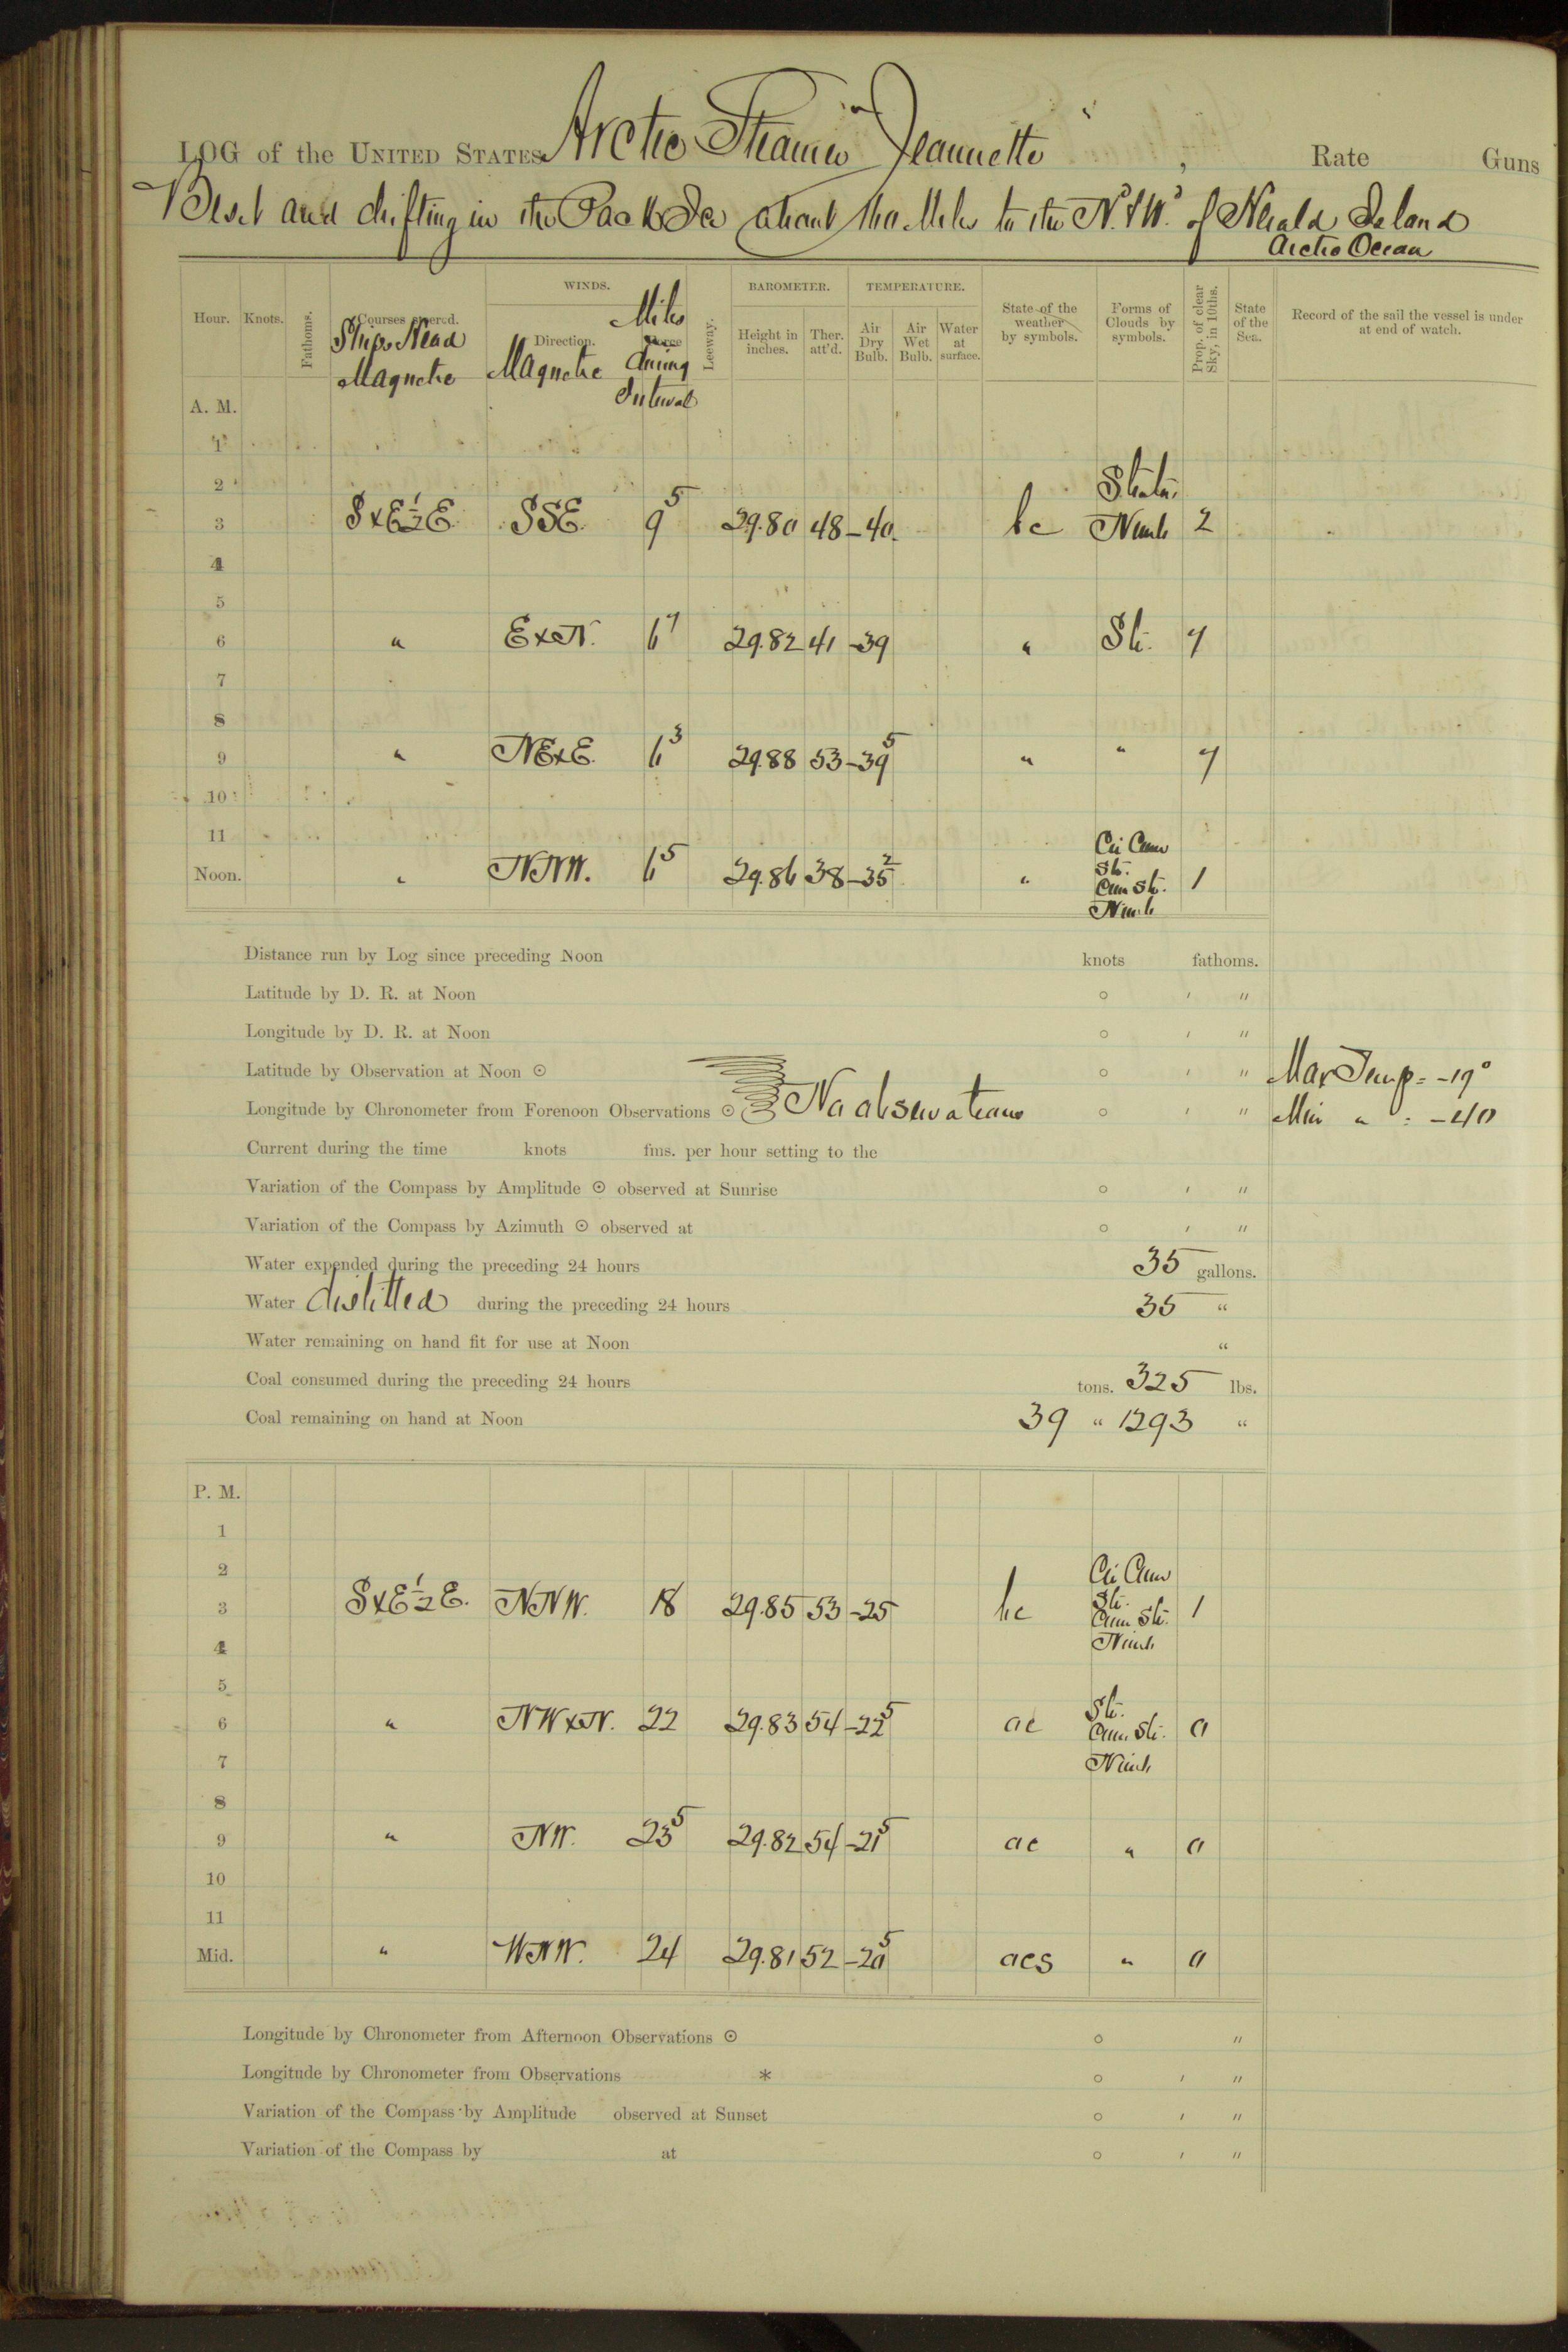 LOG of the UNITED STATES Arctic Steamer "Jeannette", Rate Guns
Beset and drifting in the Pack Ice about 160 Miles to the N.&W. of Herald Island
Arctic Ocean
WINDS. BAROMETER. TEMPERATURE.
Hour. Knots. Fathoms. Courses steered. Direction. Force Leeway. Height in inches. Ther. att'd. Air Dry Bulb. Air Wet Bulb. Water at surface. State of the weather by symbols. Forms of Clouds by symbols. Prop. of clear Sky, in 10ths. State of the Sea. Record of the sail the vessel is under at end of watch.
Ships Head Magnetic Magnetic Miles during Interval
A. M.
1
2 Strat.
3 SxE½E. SSE. 9⁵ 29.80 48 -40. bc Nimb 2
4
5
6 " ExN. 29.82 41 -39 " St.
7
8
9 " NExE. 6³ 29.88 53 -39⁵ " "
10
11 Cir Cum
St.
Noon. " NNW. 6⁵ 29.86 38 -35² " Cum St. 1
Nimb
Distance run by Log since preceding Noon knots fathoms.
Latitude by D. R. at Noon ° ′ ″
Longitude by D. R. at Noon ° ′ ″
Latitude by Observation at Noon ☉ ° ′ ″ Max Temp = -19°
Longitude by Chronometer from Forenoon Observations ☉ No observations ° ′ ″ Min " = -40
Current during the time knots fms. per hour setting to the
Variation of the Compass by Amplitude ☉ observed at Sunrise ° ′ ″
Variation of the Compass by Azimuth ☉ observed at ° ′ ″
Water expended during the preceding 24 hours 35 gallons.
Water distilled during the preceding 24 hours 35 "
Water remaining on hand fit for use at Noon "
Coal consumed during the preceding 24 hours tons. 325 lbs.
Coal remaining on hand at Noon 39 " 1293 "
P. M.
1
2 Cir Cum
St.
3 SxE½E. NNW. 18 29.85 53 -25 bc Cum St. 1
4 Nimb
5 St.
6 " NWxN. 22 29.83 54 -22⁵ oc Cum. St. 0
7 Nimb
8
9 " NW. 23⁵ 29.82 54 -21⁵ oc " 0
10
11
Mid. " WNW. 24 29.81 52 -20⁵ ocs " 0
Longitude by Chronometer from Afternoon Observations ☉ ° ″
Longitude by Chronometer from Observations * ° ′ ″
Variation of the Compass by Amplitude observed at Sunset ° ′ ″
Variation of the Compass by at ° ′ ″